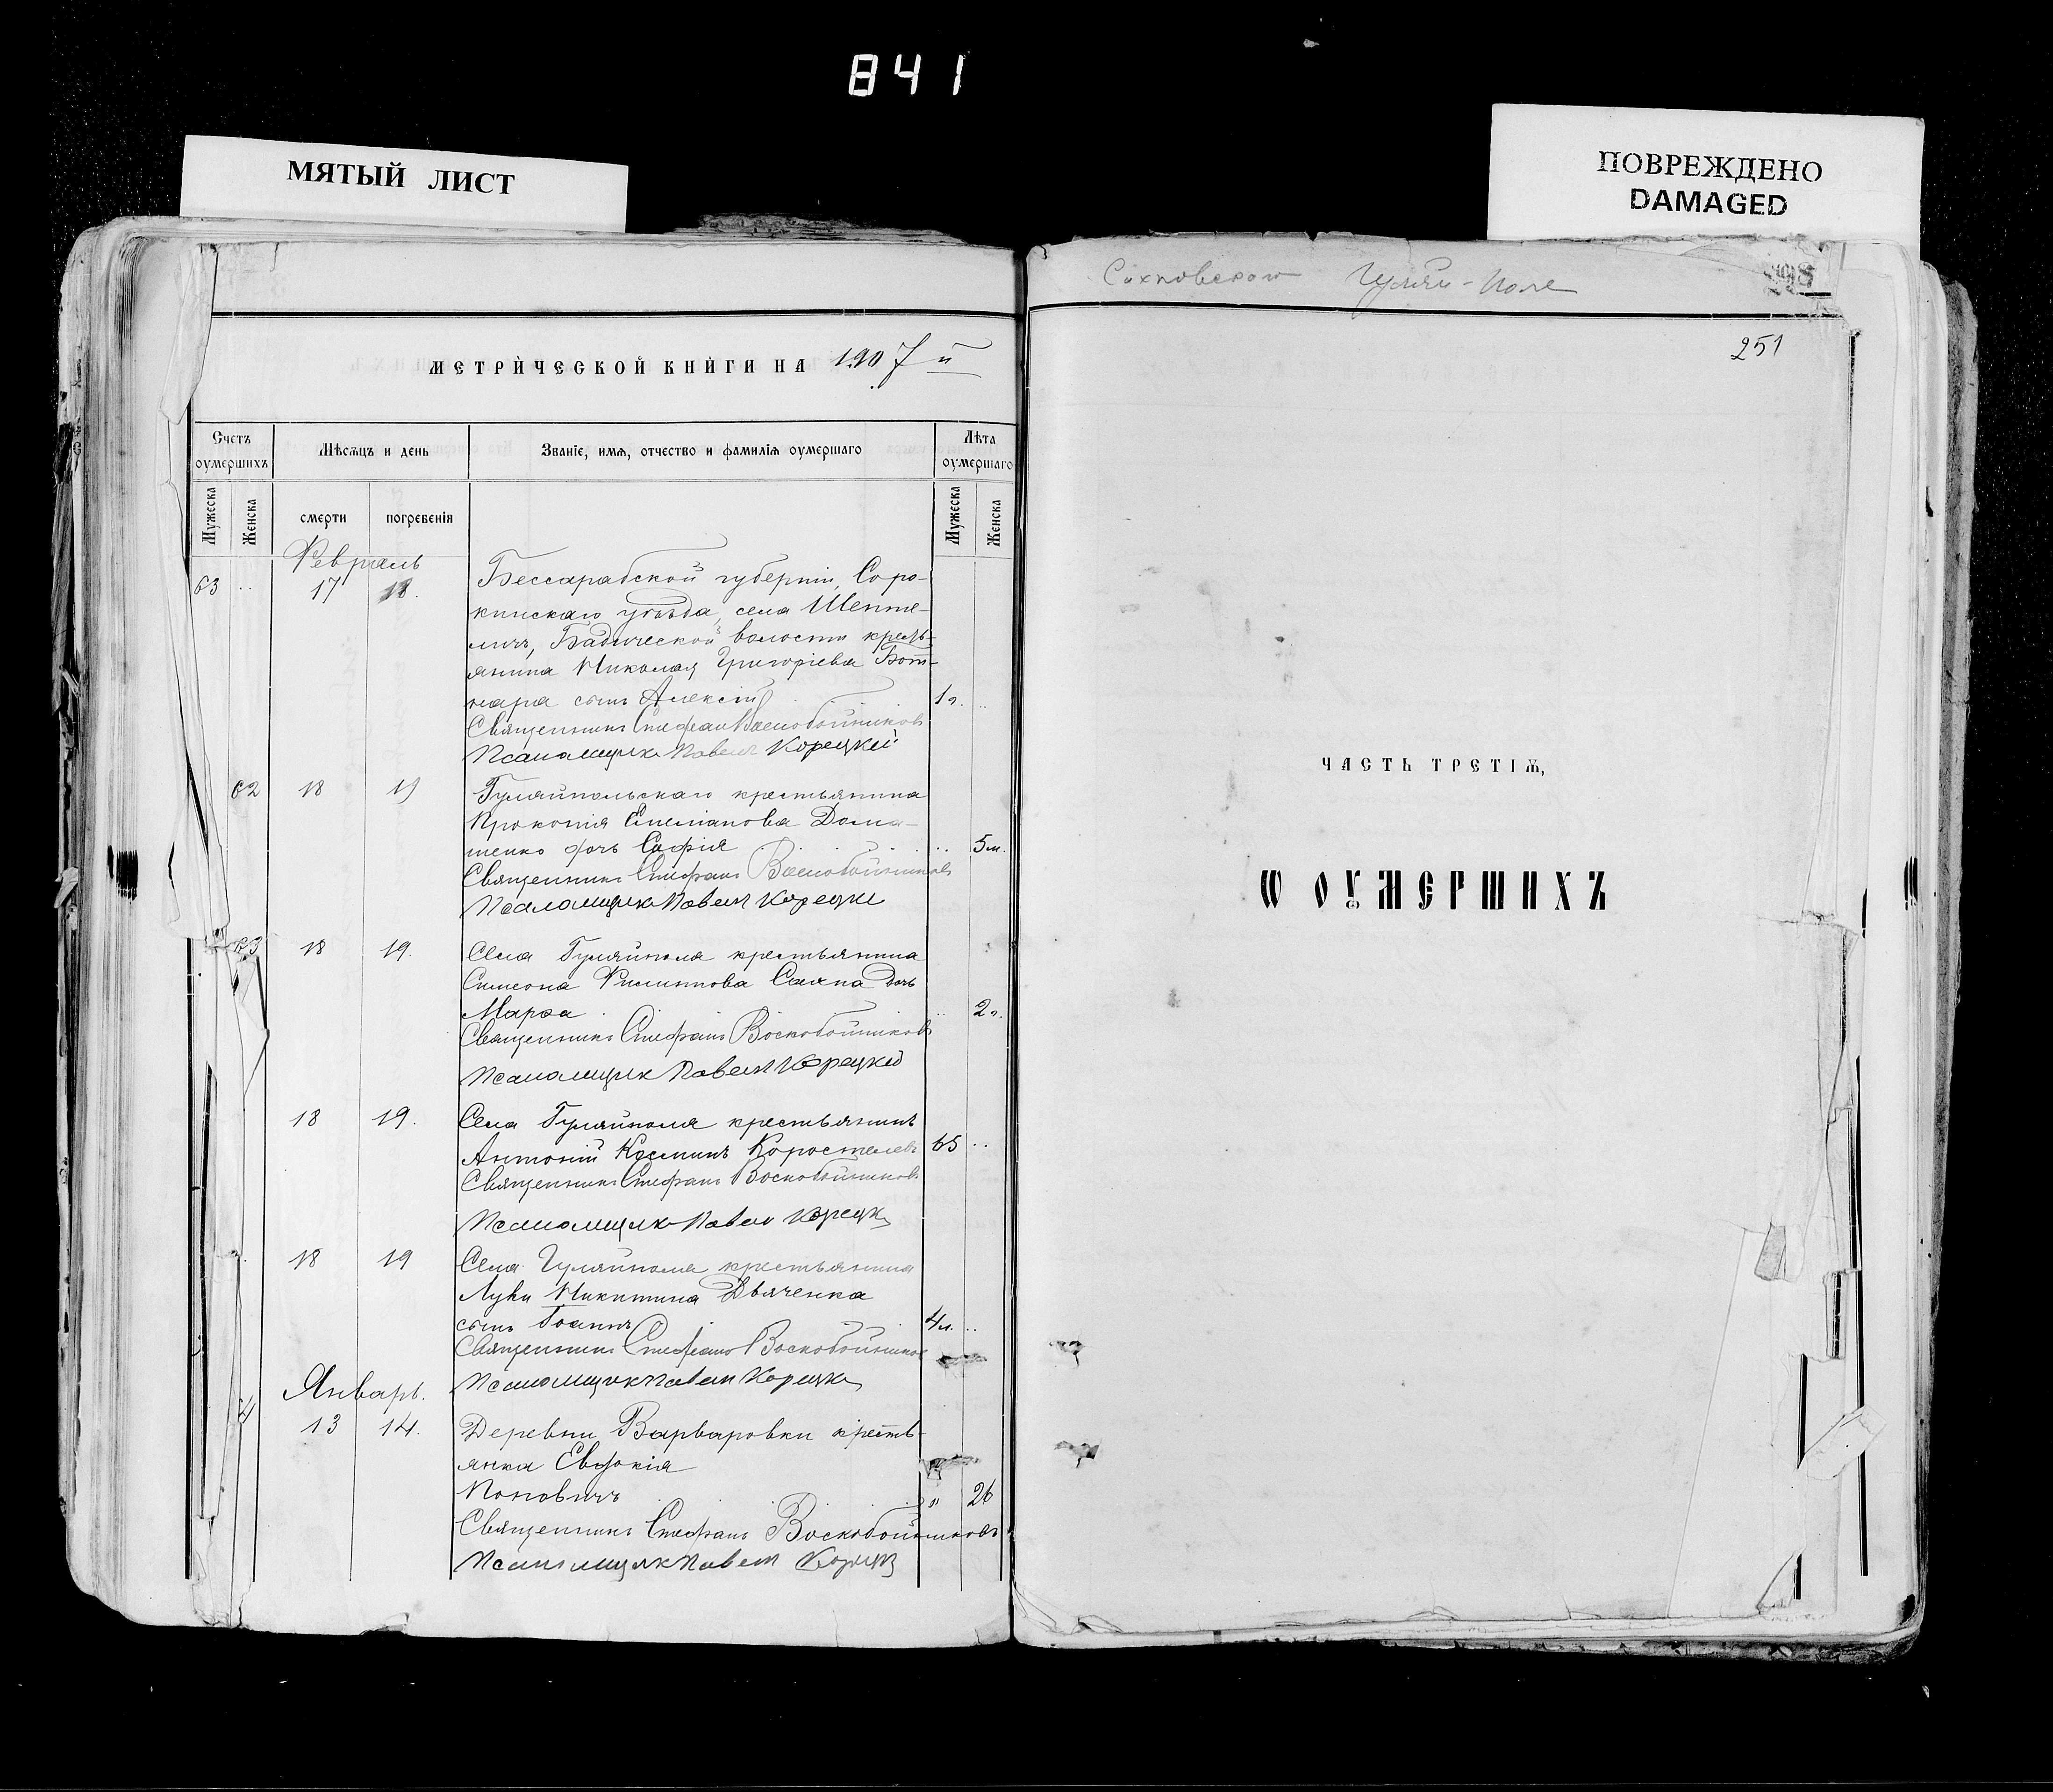 841
МЯТЫЙ ЛИСТ
ПОВРЕЖДЕНО
DAMAGED
МЕТРИЧЕСКОЙ КНИГИ НА 1907 й
Счетъ оумершихъ
Мѣсяцъ и день
Званіе, имя, отчество и фамилія оумершаго
Лѣта оумершаго
Мужеска
Женска
смерти
погребенія
Мужеска
Женска
Февраль
63 .. 17 18. Бессарабской губерніи, Соро-
кинскаго уѣзда, села Шепте-
личъ, Бадической волости кресть-
янина Николая Григоріева Бот-
нара сынъ Алексій 1г. ..
Священникъ Стефанъ Воскобойниковъ
Псаломщикъ Павелъ Корецкій
62 18 19 Гуляйпольскаго крестьянина
Прокопія Степанова Дома-
шенко дочь Софія .. 5м.
Священникъ Стефанъ Воскобойниковъ
Псаломщикъ Павелъ Корецкі
63 18 19. Села Гуляйполя крестьянина
Симеона Филиппова Саяпа дочь
Марѳа .. 2г.
Священникъ Стефанъ Воскобойниковъ
Псаломщикъ Павелъ Корецкій
18 19. Села Гуляйполя крестьянинъ
Антоній Косминъ Коростелевъ 65 ..
Священникъ Стефанъ Воскобойниковъ
Псаломщикъ Павелъ Корецк
18 19 Села Гуляйполя крестьянина
Луки Никитина Дьяченка
сынъ Іоаннъ 4м. ..
Священникъ Стефанъ Воскобойников
Псаломщикъ Павелъ Корецк
Январь.
4 13 14. Деревни Варваровки кресть-
янка Евдокія
Поповичъ " 26
Священникъ Стефанъ Воскобойниковъ
Псаломщикъ Павелъ Корецк
Гуляй-Поле
251
ЧАСТЬ ТРЕТІЯ,
Ѡ ОУМЕРШИХЪ